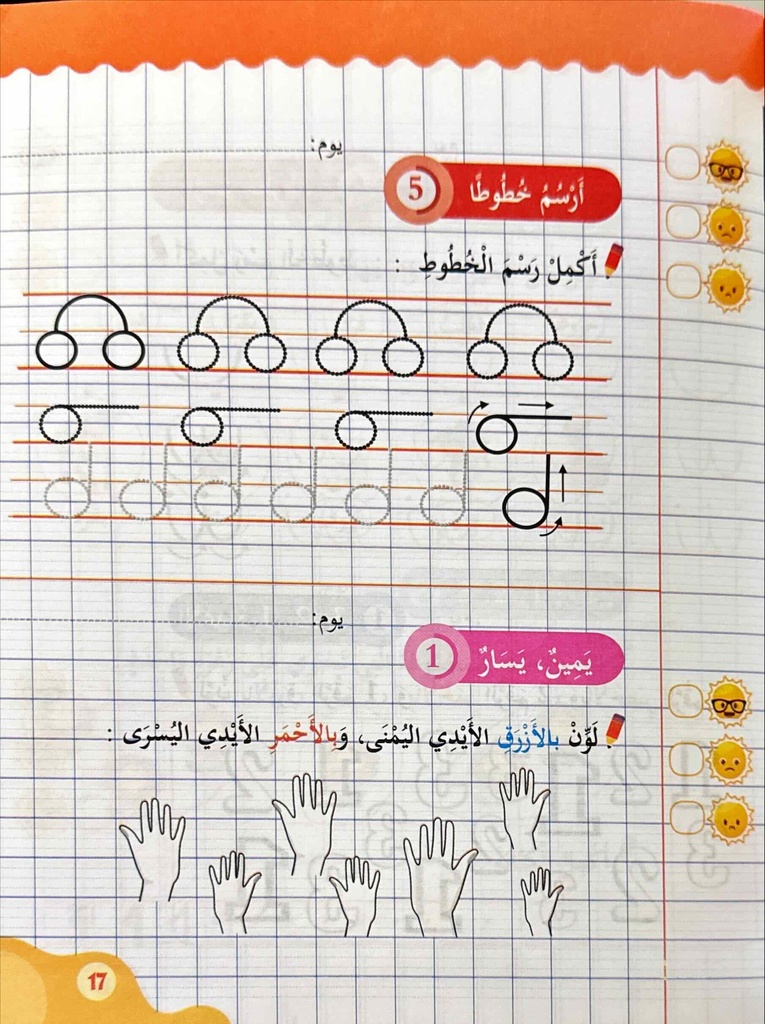 يوم:
أَرْسُمُ خُطُوطًا 5
أَكْمِلْ رَسْمَ الْخُطُوطِ :
يوم:
يَمِينٌ، يَسَارٌ 1
لَوِّنْ بِالأَزْرَقِ الأَيْدِي اليُمْنَى، وَبِالأَحْمَرِ الأَيْدِي اليُسْرَى :
17